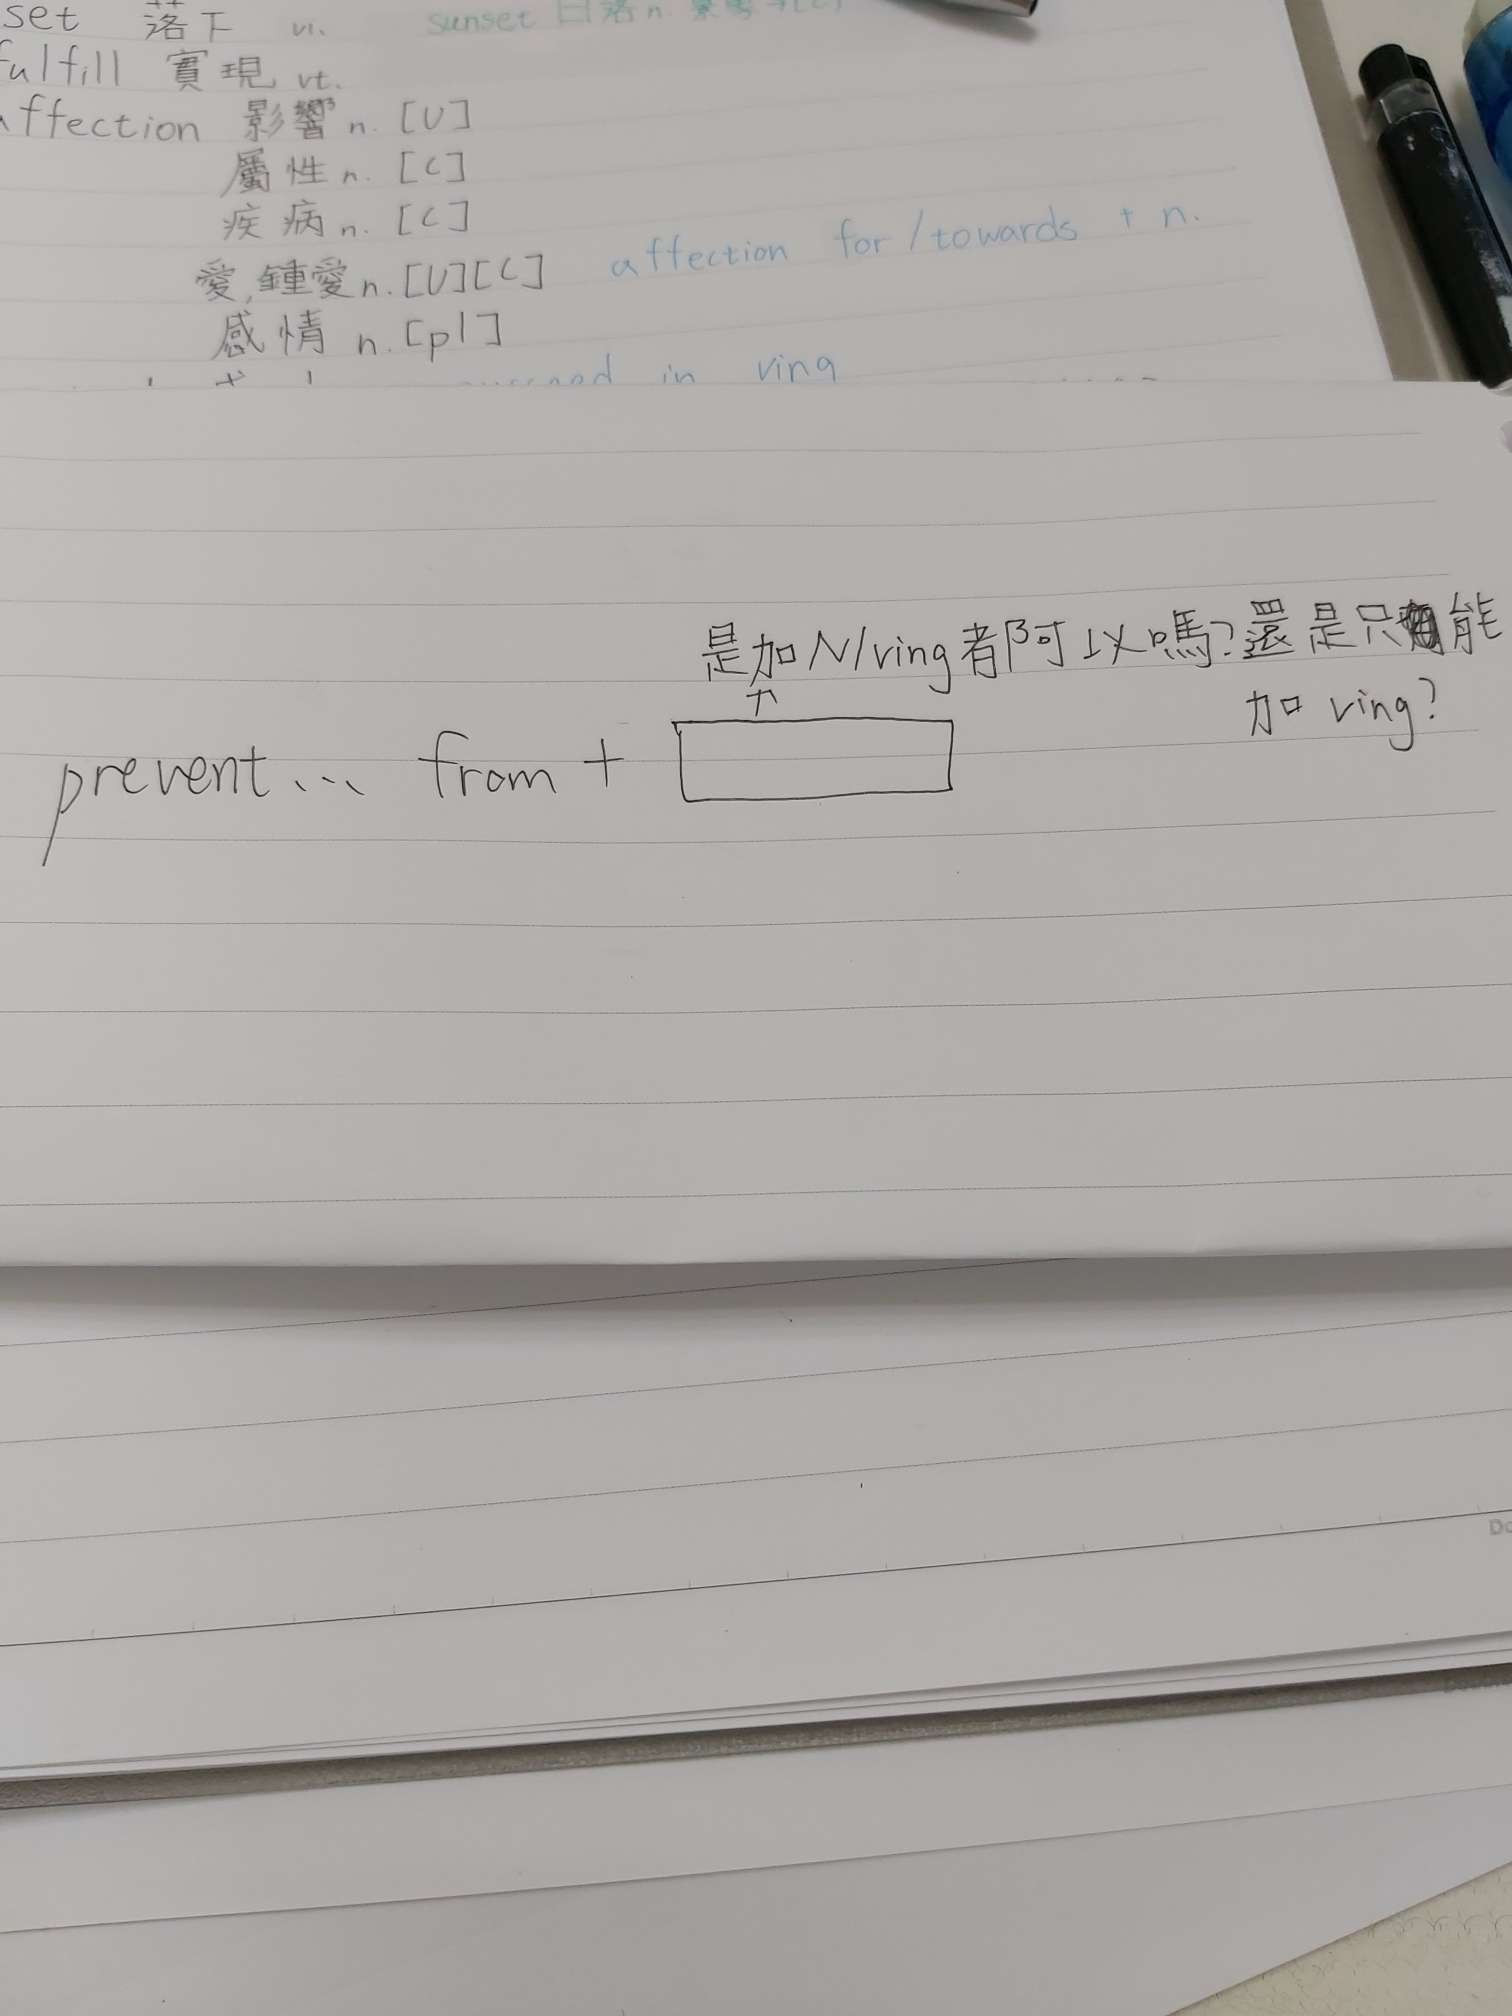 set 落下 vi. sunset 日落 n.
fulfill 實現 vt.
affection 影響 n. [U]
屬性 n. [C]
疾病 n. [C]
愛, 鍾愛 n. [U][C] affection for / towards + n.
感情 n. [pl]
in ving
是加 N/ving 者阿以嗎? 還是只能
加 ving?
↑
prevent... from +